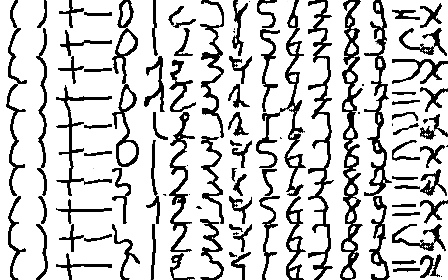 ( ) + - 0 1 2 3 4 5 6 7 8 9 = x
( ) + - 0 1 2 3 4 5 6 7 8 9 = x
( ) + - 1 2 3 4 5 6 7 8 9 x
( ) + - 0 1 2 3 4 5 6 7 8 9 = x
( ) + - 1 2 3 4 5 6 7 8 9 = x
( ) + - 0 1 2 3 4 5 6 7 8 9 x
( ) + - 1 2 3 4 5 6 7 8 9 = x
( ) + - 1 2 3 4 5 6 7 8 9 = x
( ) + - 1 2 3 4 5 6 7 8 9 = x
( ) + - 0 1 2 3 4 5 6 7 8 9 = x